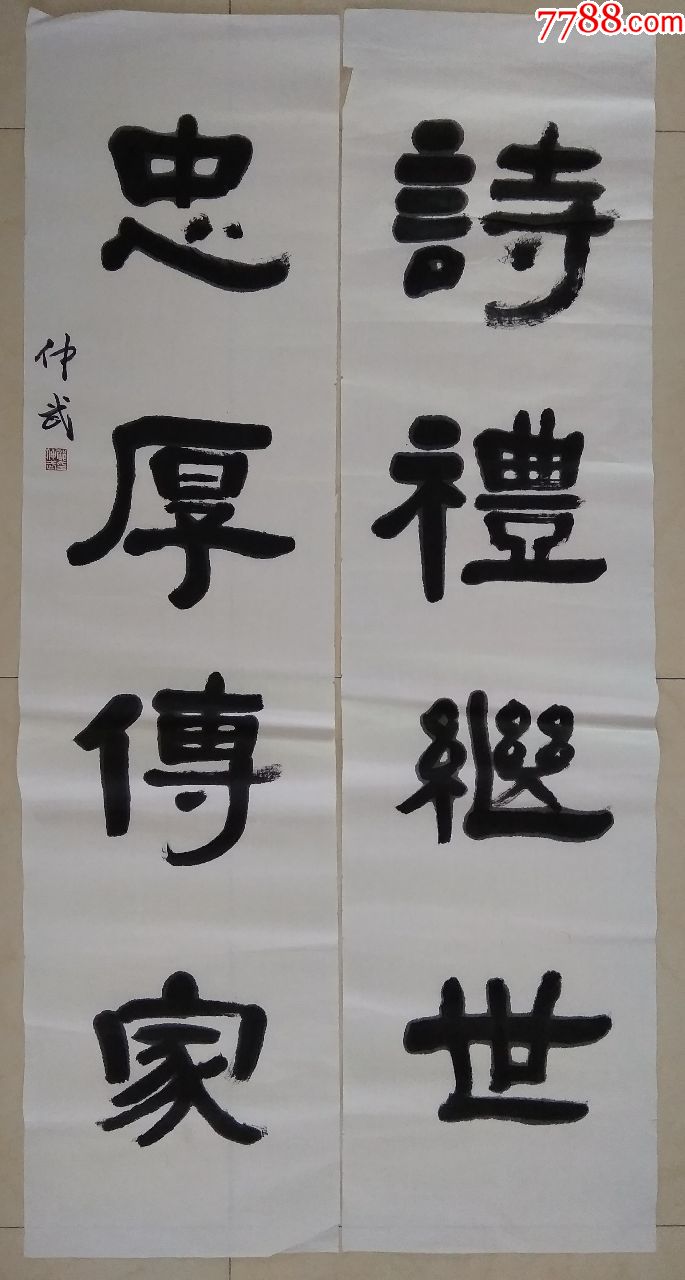 7788.com
詩禮繼世
忠厚傳家
仲武